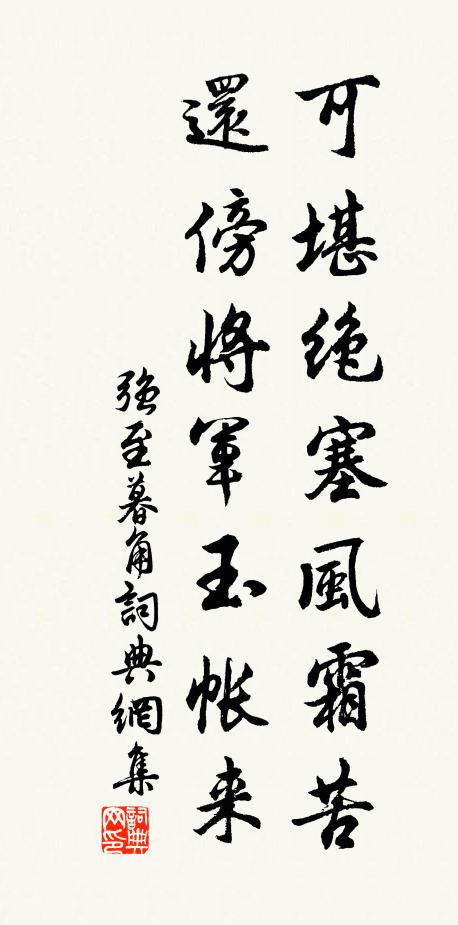 可堪绝塞風霜苦
還傍將軍玉帳来
強至暮角詞典網集
詞典网印